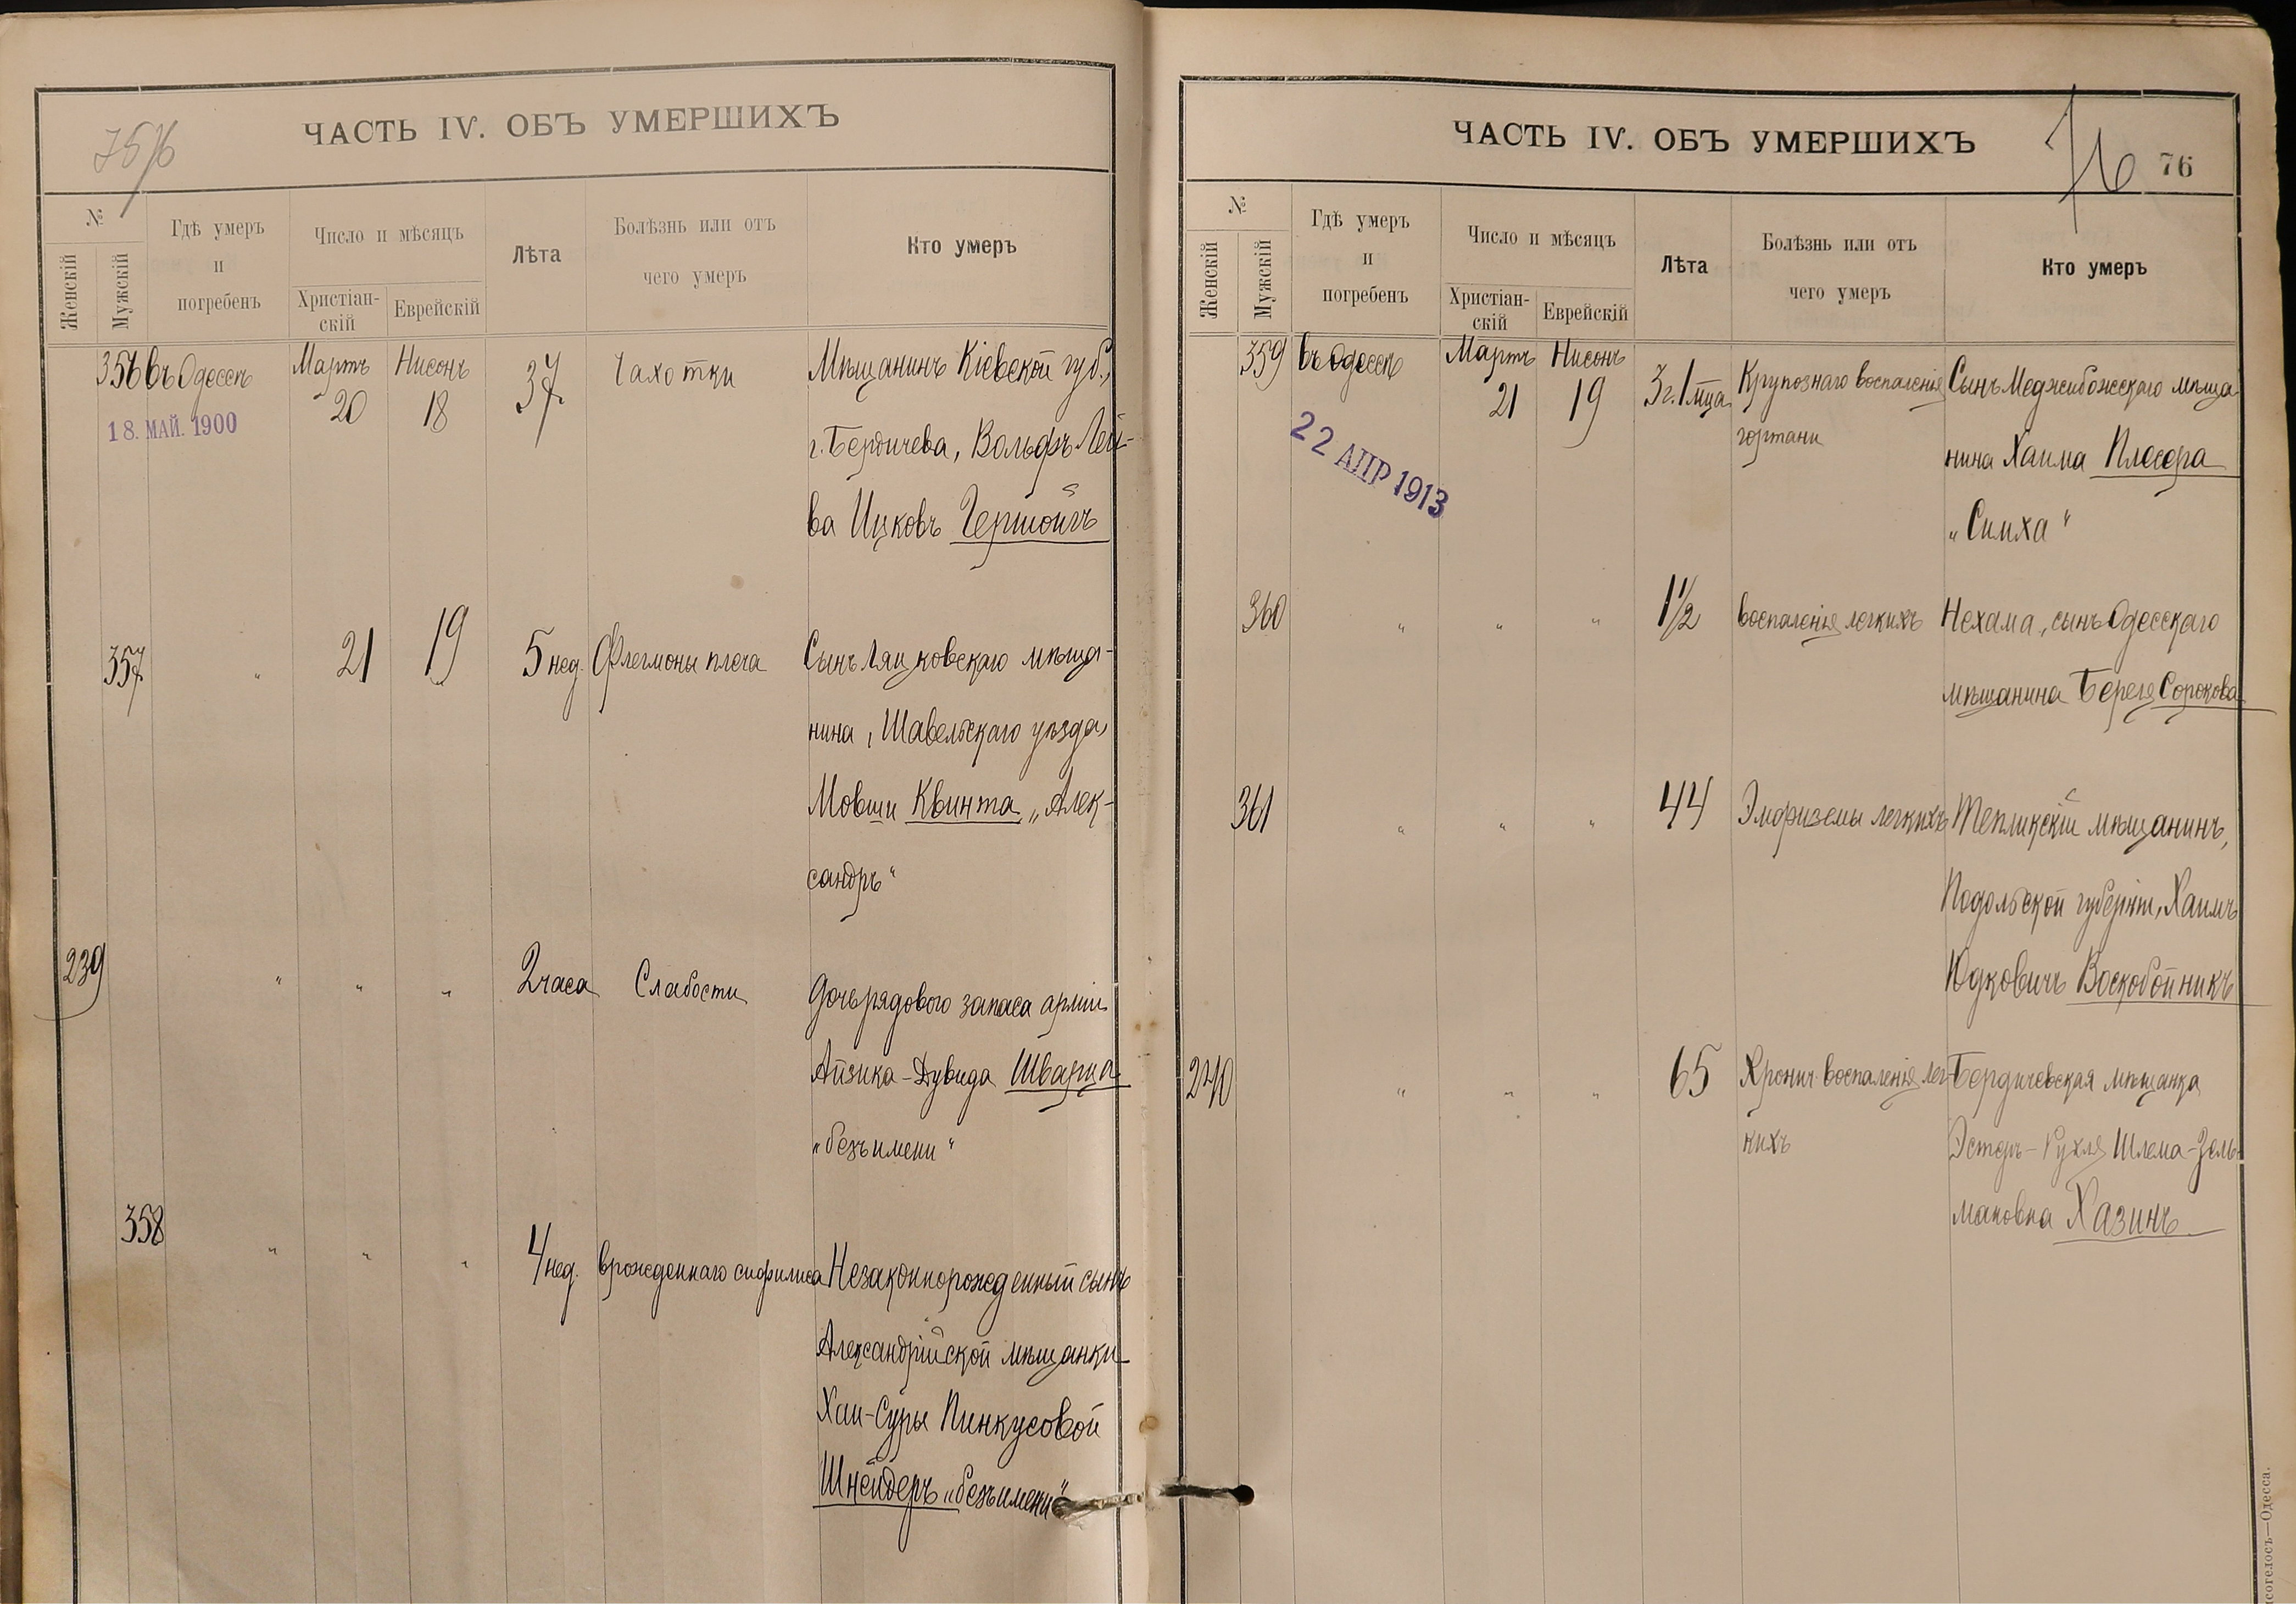 75/6
ЧАСТЬ IV. ОБЪ УМЕРШИХЪ
№
Женскій
Мужскій
Гдѣ умеръ
и
погребенъ
Число и мѣсяцъ
Христіан-
скій
Еврейскій
Лѣта
Болѣзнь или отъ
чего умеръ
Кто умеръ
356 въ Одессѣ Мартъ 20 Нисонъ 18 37 Чахотки Мѣщанинъ Кіевской губ.,
18. МАЙ. 1900
г. Бердичева, Вольфъ-Лей-
ва Ицковъ
357 " 21 19 5 нед. Флегмоны плеча Сынъ Ляцковскаго мѣща-
нина, Шавельскаго уѣзда,
Мовши Квинта „Алек-
сандръ“
239 " " " 2 часа Слабости Дочь рядового запаса арміи
Айзика-Дувида Шварца
„безъ имени“
358 " " " 4 нед. врожденнаго сифилиса Незаконнорожденный сынъ
Александрійской мѣщанки
Хаи-Суры Пинкусовой
Шнейдеръ „безъ имени“
ЧАСТЬ IV. ОБЪ УМЕРШИХЪ
76
76
№
Женскій
Мужскій
Гдѣ умеръ
и
погребенъ
Число и мѣсяцъ
Христіан-
скій
Еврейскій
Лѣта
Болѣзнь или отъ
чего умеръ
Кто умеръ
359 въ Одессѣ Мартъ 21 Нисонъ 19 3 г. 1 мца Крупознаго воспаленія Сынъ Меджибожескаго мѣща-
гортани
22 АПР 1913
нина Хаима Плесера
„Симха“
360 " " " 1 1/2 воспаленія легкихъ Нехама, сынъ Одесскаго
мѣщанина Береля Сорокова
361 " " " 44 Эмфиземы легкихъ Тепликскій мѣщанинъ,
Подольской губерніи, Хаимъ
Юдковичъ Воскобойникъ
240 " " " 65 Хронич. воспаленія лег- Бердичевская мѣщанка
кихъ
Эстеръ-Рухля Шлема-Зель-
мановна Хазинъ
Одесса.